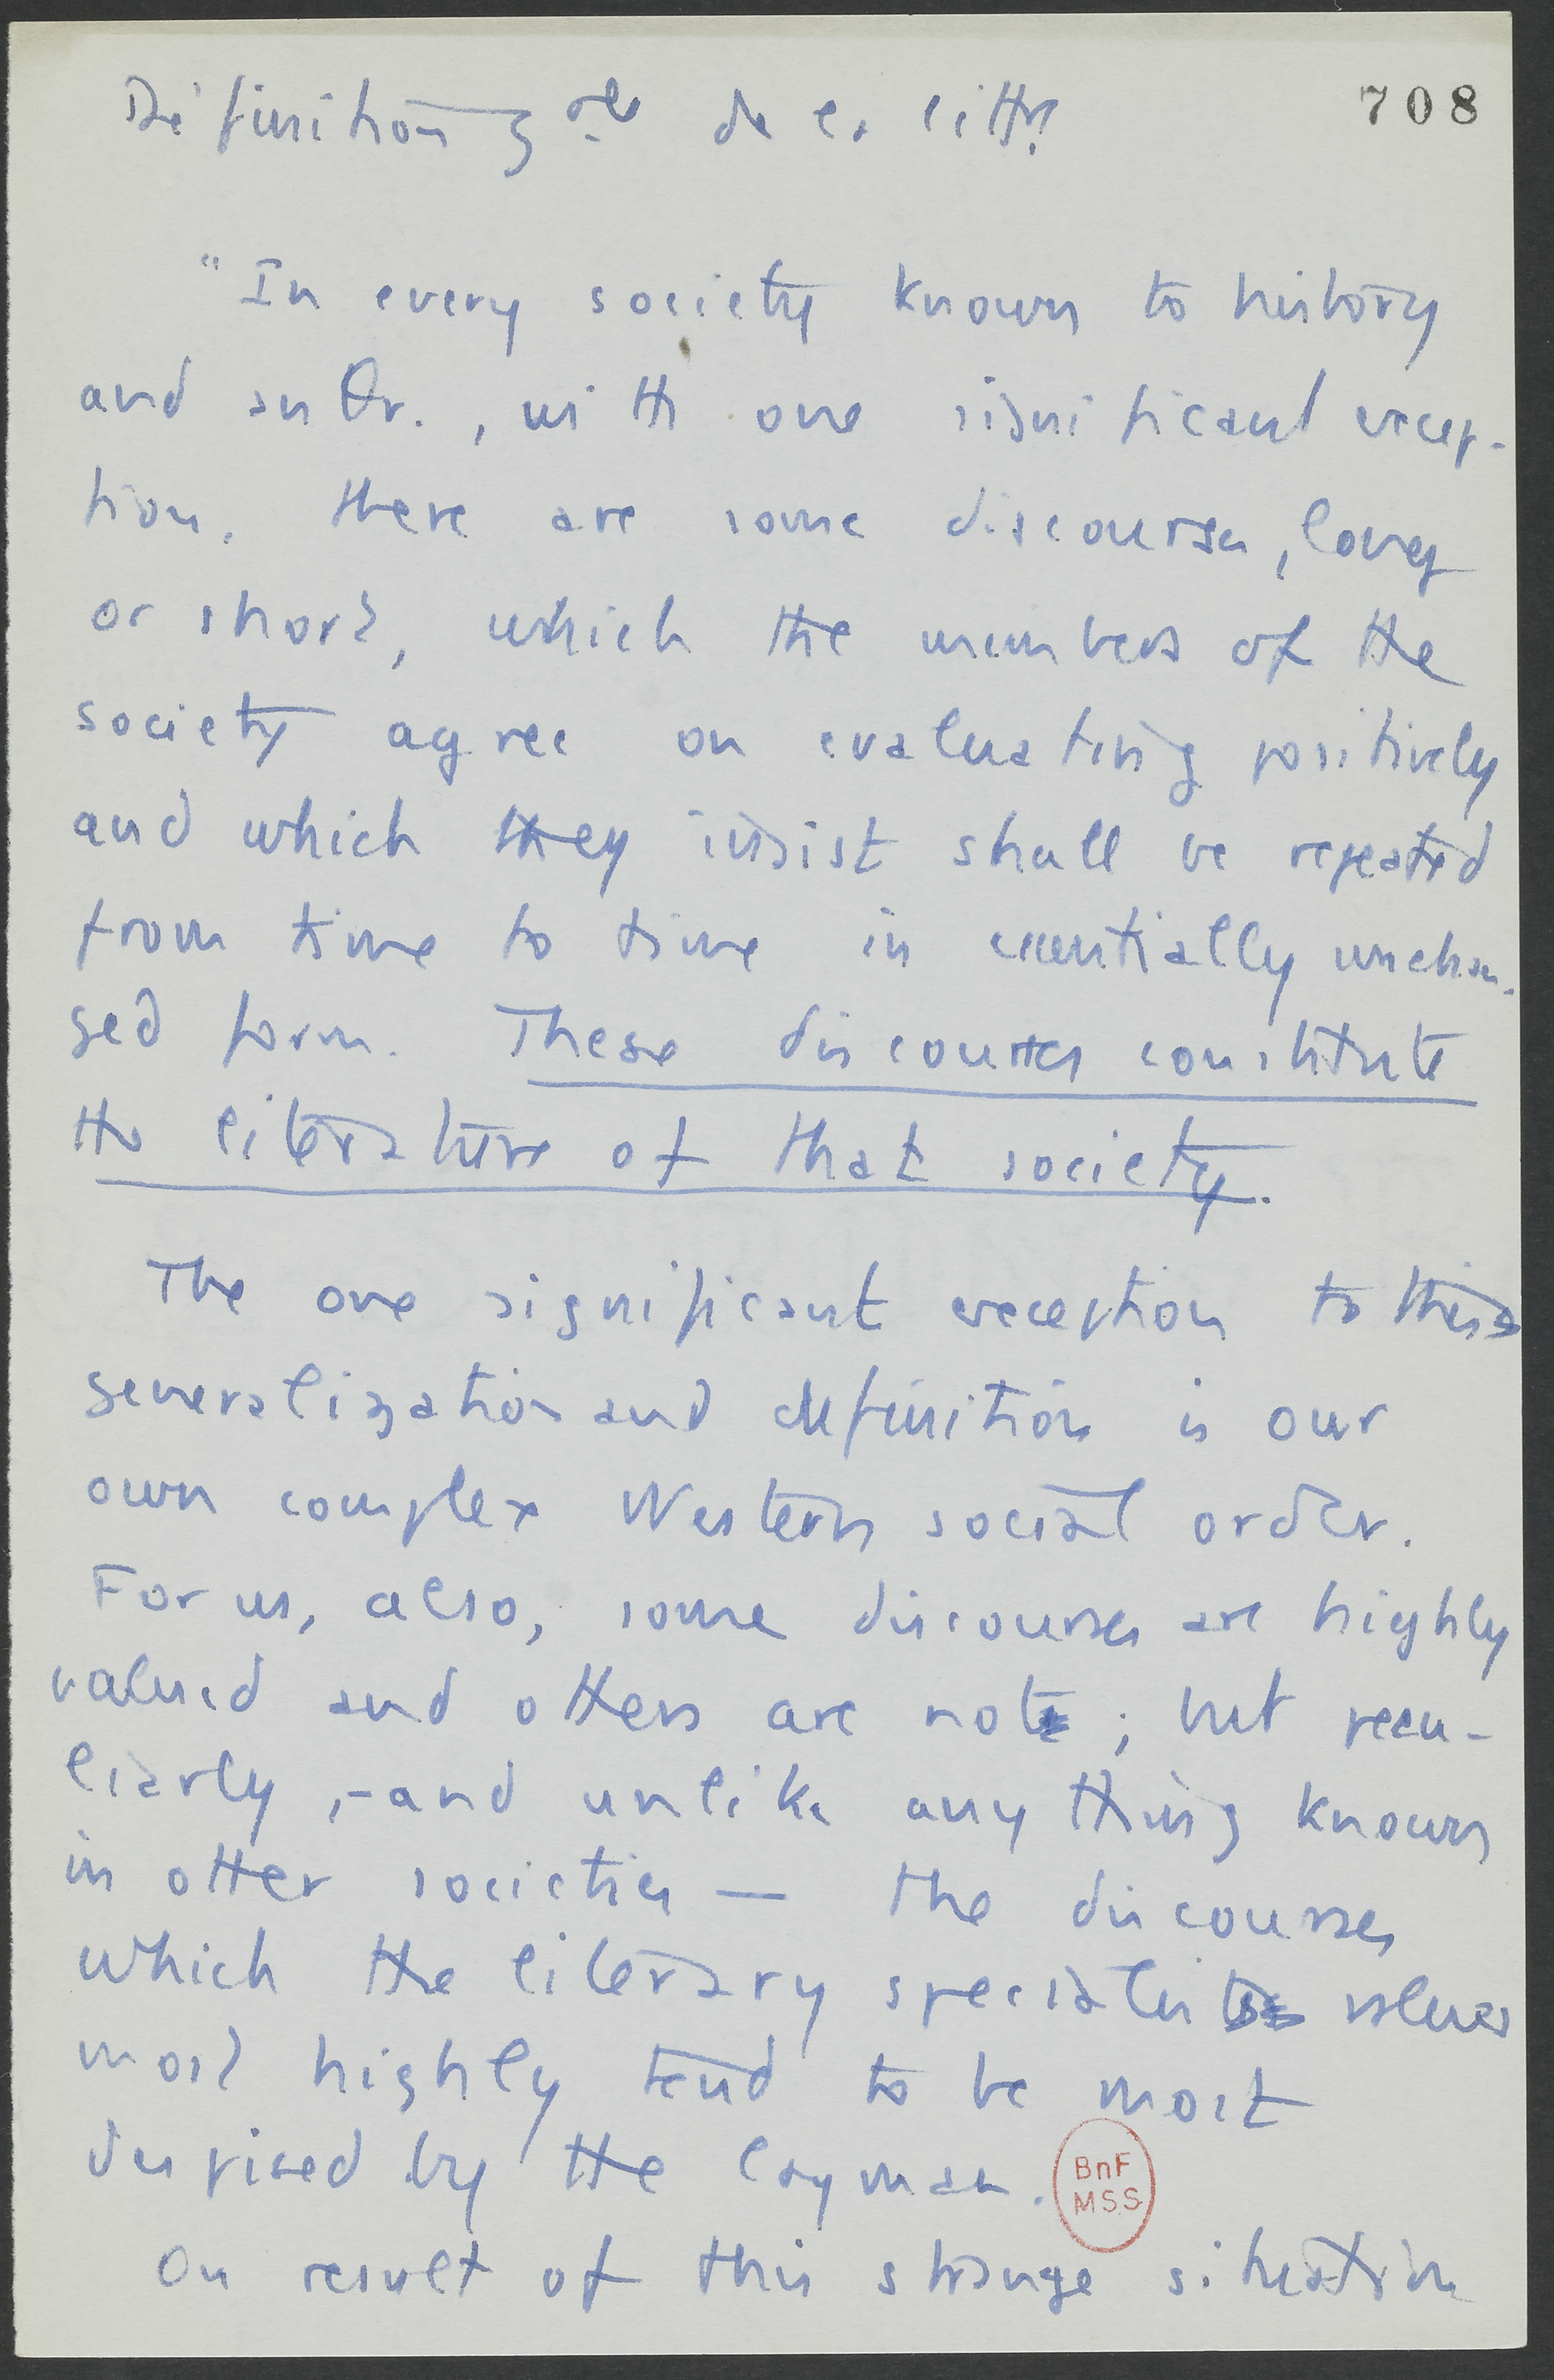 Définition gale de la littre
708
"In every society known to history
and anthr., with one significant excep-
tion, there are some discourses, long
or short, which the members of the
society agree on evaluating positively
and which they insist shall be repeated
from time to time in essentially unchan-
ged form. These discourses constitute
the literature of that society.
The one significant exception to this
generalization and definition is our
own complex Western social order.
For us, also, some discourses are highly
valued and others are not; but pecu-
liarly, - and unlike anything known
in other societies — the discourses
which the literary specialist values
most highly tend to be most
despised by the layman.
BnF
MSS
On result of this strange situation